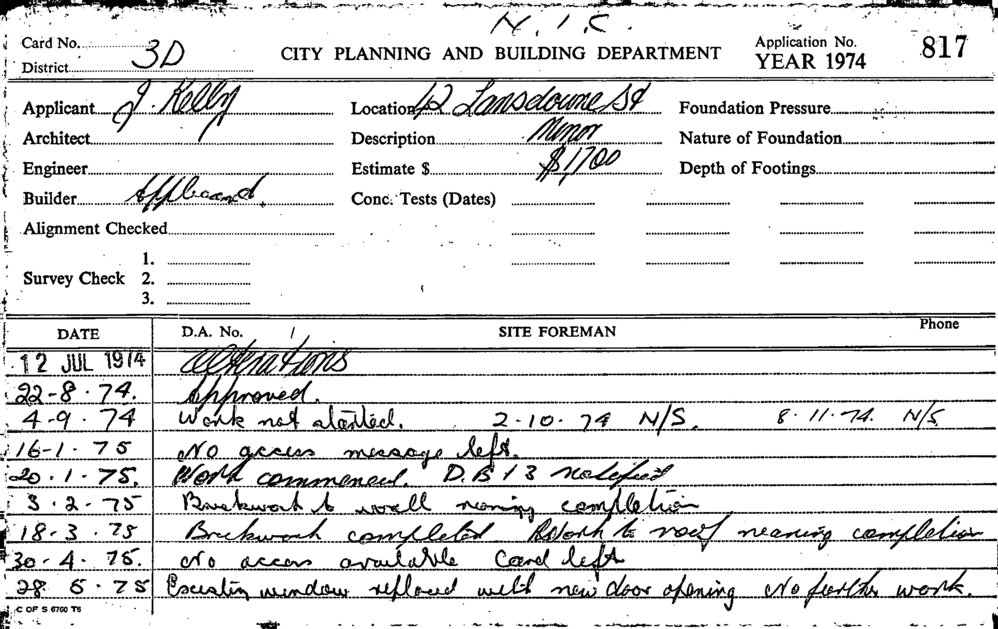 N.I.C.
Card No. 3D CITY PLANNING AND BUILDING DEPARTMENT Application No. 817
District YEAR 1974
Applicant J. Kelly Location 42 Lansdowne St Foundation Pressure
Architect Description Minor Nature of Foundation
Engineer Estimate $ $1,700 Depth of Footings
Builder Applicant. Conc. Tests (Dates)
Alignment Checked
1.
Survey Check 2.
3.
DATE D.A. No. / SITE FOREMAN Phone
12 JUL 1974 Alterations
22-8-74. Approved.
4-9-74 Work not started. 2-10-74 N/S. 8.11.74. N/S
16-1-75 No access message left.
20.1.75. Work commenced. D.B 13 notified
3.2.75 Brickwork to wall nearing completion
18-3.75 Brickwork completed Work to roof nearing completion
30-4.75. No access available Card left
28.5.75 Existing window replaced with new door opening No further work.
C OF S 6760 T6